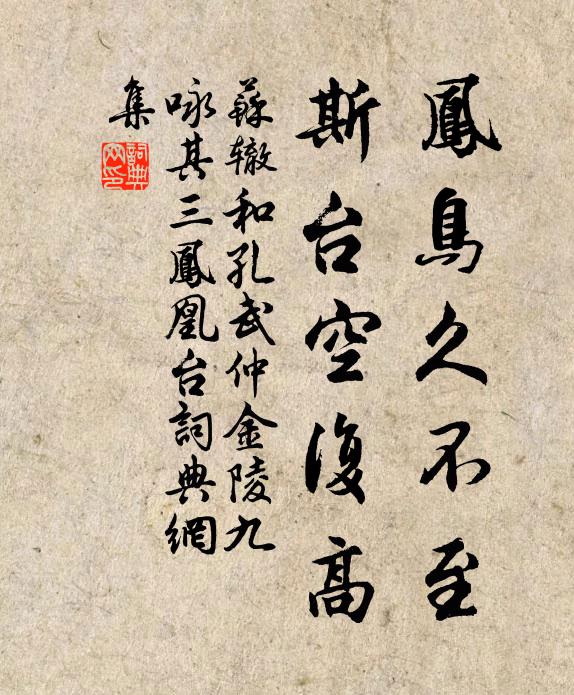 鳳鳥久不至
斯台空復高
蘇辙和孔武仲金陵九
咏其三鳳凰台詞典網
集
詞典
网印